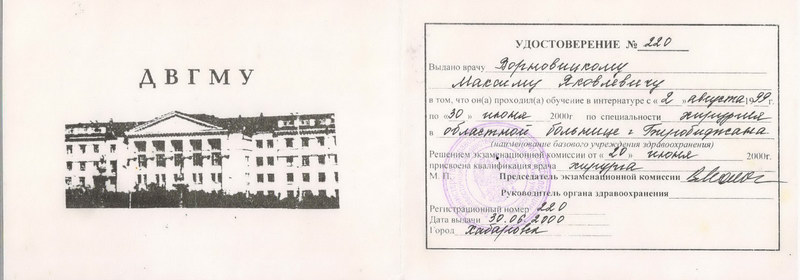 ДВГМУ
УДОСТОВЕРЕНИЕ № 220
Выдано врачу Ворновицкому
Максиму Яковлевичу
в том, что он(а) проходил(а) обучение в интернатуре с « 2 » августа 1999 г.
по « 30 » июня 2000г по специальности хирургия
в областной больнице г Биробиджана
(наименование базового учреждения здравоохранения)
Решением экзаменационной комиссии от « 20 » июня 2000г.
присвоена квалификация врача хирурга
М. П. Председатель экзаменационной комиссии
Руководитель органа здравоохранения
Регистрационный номер 220
Дата выдачи 30.06.2000
Город Хабаровск